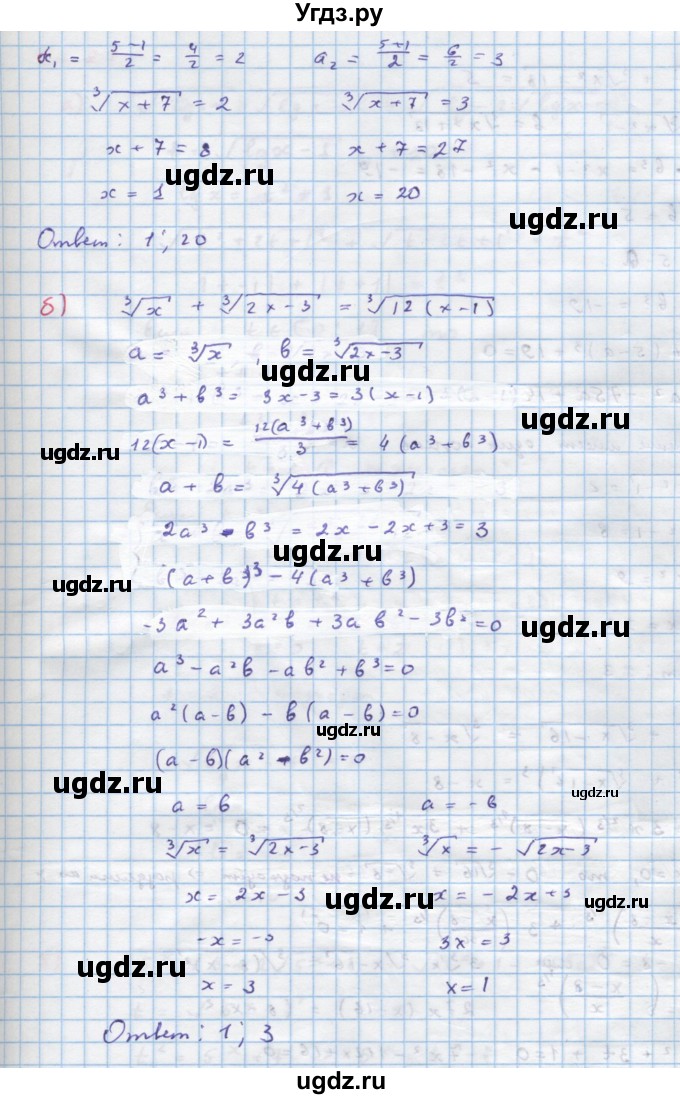 Угдз.ру
x₁ = (5-1)/2 = 4/2 = 2    a₂ = (5+1)/2 = 6/2 = 3
∛(x+7) = 2    ∛(x+7) = 3
x + 7 = 8    x + 7 = 27
x = 1    x = 20
ugdz.ru
ugdz.ru
Ответ: 1; 20
ugdz.ru
б) ∛x + ∛(2x-3) = ∛(12(x-1))
a = ∛x, b = ∛(2x-3)
ugdz.ru
a³ + b³ = 3x-3 = 3(x-1)
ugdz.ru
12(x-1) = 12(a³+b³)/3 = 4(a³+b³)
ugdz.ru
a + b = ∛(4(a³+b³))
2a³ - b³ = 2x - 2x + 3 = 3
ugdz.ru
(a+b)³ - 4(a³+b³)
ugdz.ru
-3a² + 3a²b + 3ab² - 3b² = 0
ugdz.ru
a³ - a²b - ab² + b³ = 0
a²(a-b) - b(a-b) = 0
ugdz.ru
(a-b)(a² - b²) = 0
ugdz.ru
ugdz.ru
a = b    a = -b
∛x = ∛(2x-3)    ∛x = -√(2x-3)
x = 2x - 3    x = -2x + 3
ugdz.ru
ugdz.ru
-x = -3    3x = 3
ugdz.ru
x = 3    x = 1
Ответ: 1; 3
ugdz.ru
ugdz.ru